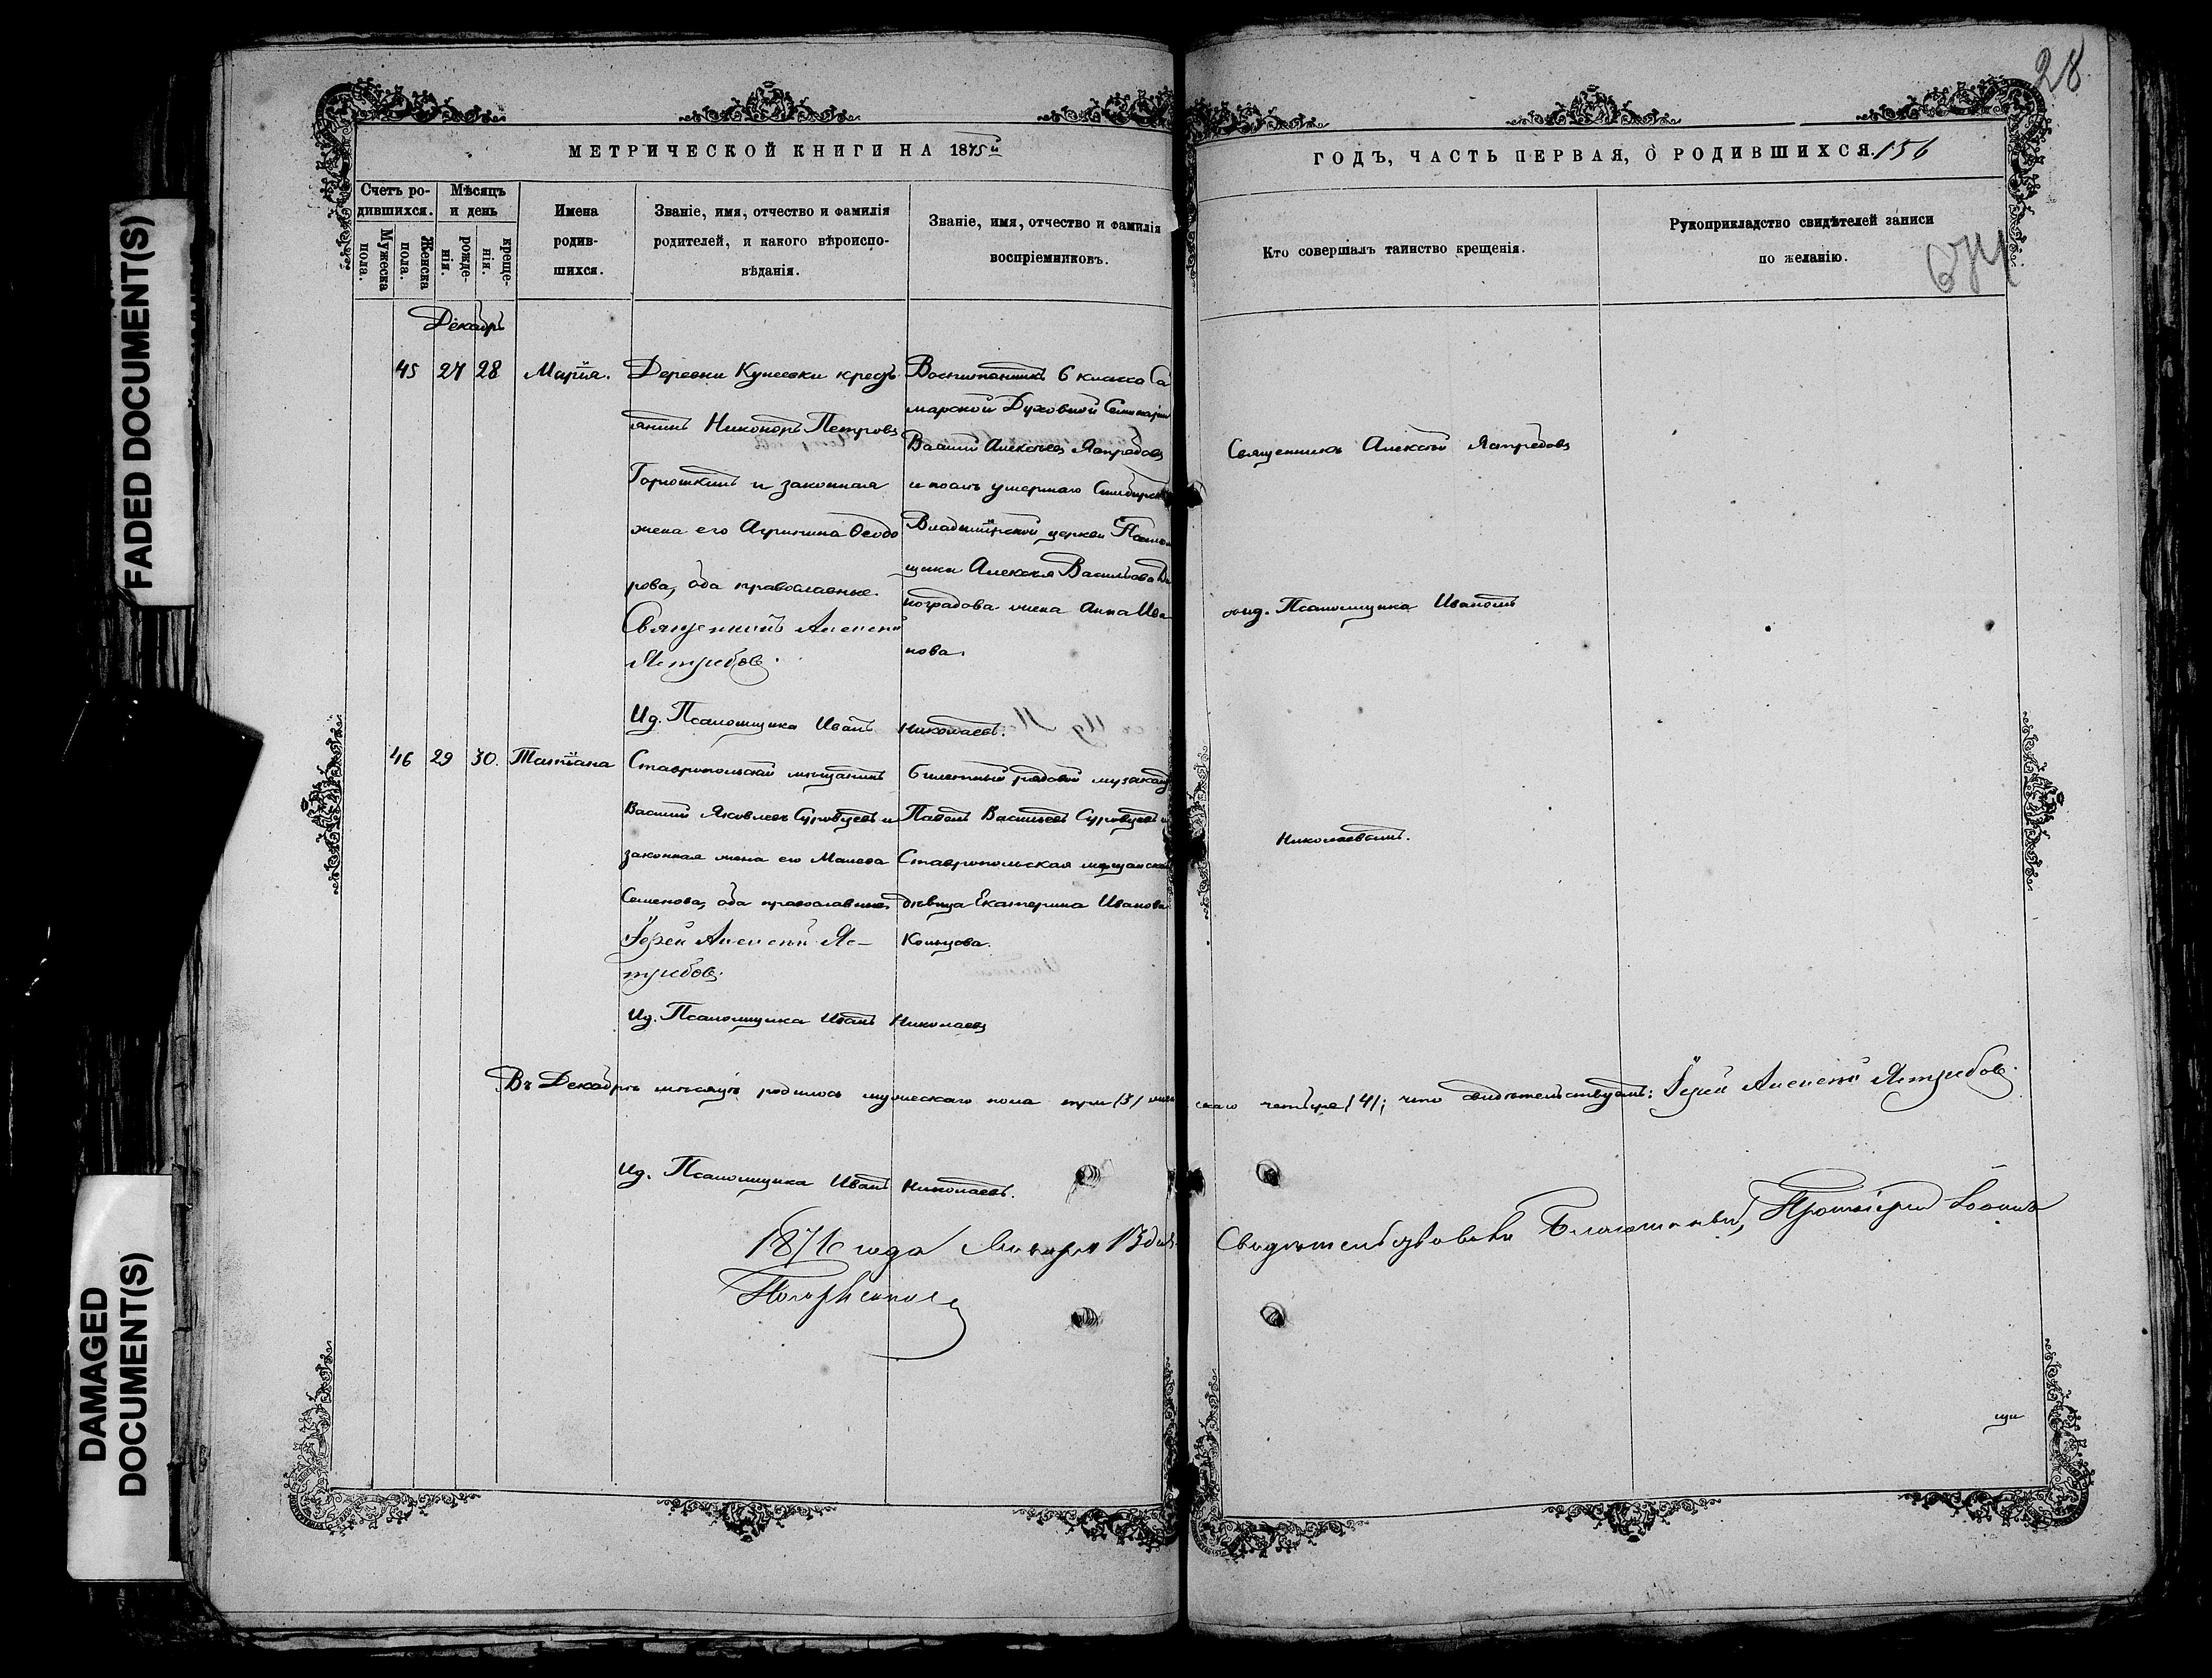 28
МЕТРИЧЕСКОЙ КНИГИ НА 1875й
ГОДЪ, ЧАСТЬ ПЕРВАЯ, О РОДИВШИХСЯ. 156
Счетъ ро-
дившихся.
Мужеска
пола.
Женска
пола.
Мѣсяцъ
и день
рожде-
нія.
креще-
нія.
Имена
родив-
шихся.
Званіе, имя, отчество и фамилія
родителей, и какого вѣроиспо-
вѣданія.
Званіе, имя, отчество и фамилія
воспріемниковъ.
Кто совершалъ таинство крещенія.
Рукоприкладство свидѣтелей записи
по желанію.
674
Декабрь
45 27 28 Марія.
Деревни Кунеевки кресть
янинъ Никоноръ Петровъ
Горюшкинъ и законная
жена его Агрипина Ѳеодо
рова, оба православные.
Священникъ Алексѣй
Ястребовъ.
Ид. Псаломщика Иванъ Николаевъ.
Воспитанникъ 6 класса Са
марской Духовной Семинаріи
Василій Алексѣевъ Ястребовъ
и умершаго Симбирской
Владимірской церкви Псалом
щика Алексѣя Васильева Ви
ноградова жена Анна Ива
нова.
Священникъ Алексѣй Ястребовъ
съ ид. Псаломщика Иваномъ
Николаевымъ.
46 29 30. Татіана
Ставропольскій мѣщанинъ
Василій Яковлевъ Суровцевъ и
законная жена его
Семенова, оба православные
Іерей Алексѣй Яс-
требовъ.
Ид. Псаломщика Иванъ Николаевъ
Билетный рядовой музыкантъ
Павелъ Васильевъ Суровцевъ и
Ставропольская мѣщанская
дѣвица Екатерина Иванова
Кольцова.
Въ Декабрѣ мѣсяцѣ родилось мужескаго пола три (3) женскаго четыре (4); что свидѣтельствуемъ: Іерей Алексѣй Ястребовъ.
Ид. Псаломщика Иванъ Николаевъ.
1876 года Января 13 дня Свидѣтельствовалъ Благочинный, Протоіерей Іоаннъ